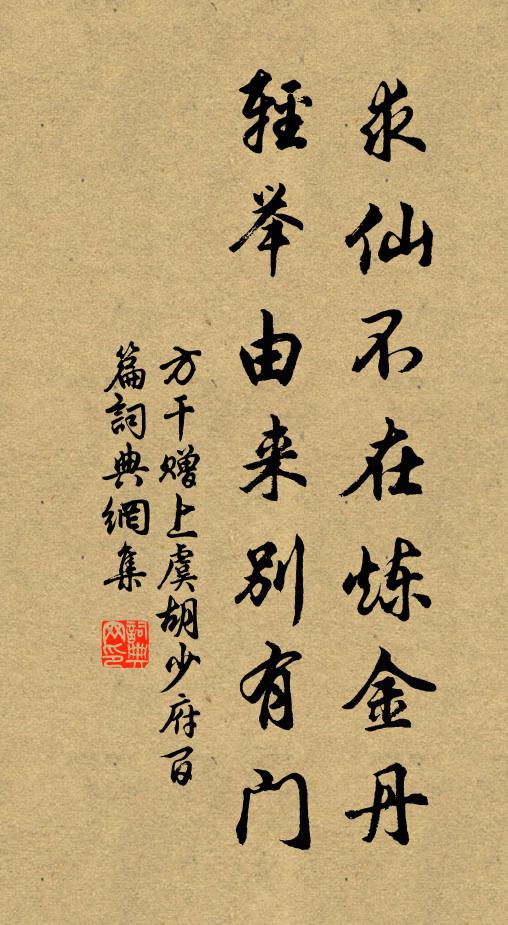 求仙不在炼金丹
輕举由来别有门
方干赠上虞胡少府百
篇詞典網集
詞典
网印